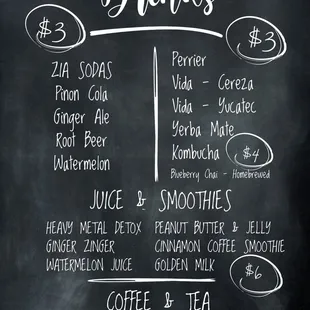 Drinks
$3
$3
ZIA SODAS
Pinon Cola
Ginger Ale
Root Beer
Watermelon
Perrier
Vida - Cereza
Vida - Yucatec
Yerba Mate
Kombucha $4
Blueberry Chai - Homebrewed
JUICE & SMOOTHIES
HEAVY METAL DETOX
GINGER ZINGER
WATERMELON JUICE
PEANUT BUTTER & JELLY
CINNAMON COFFEE SMOOTHIE
GOLDEN MILK
$6
COFFEE & TEA